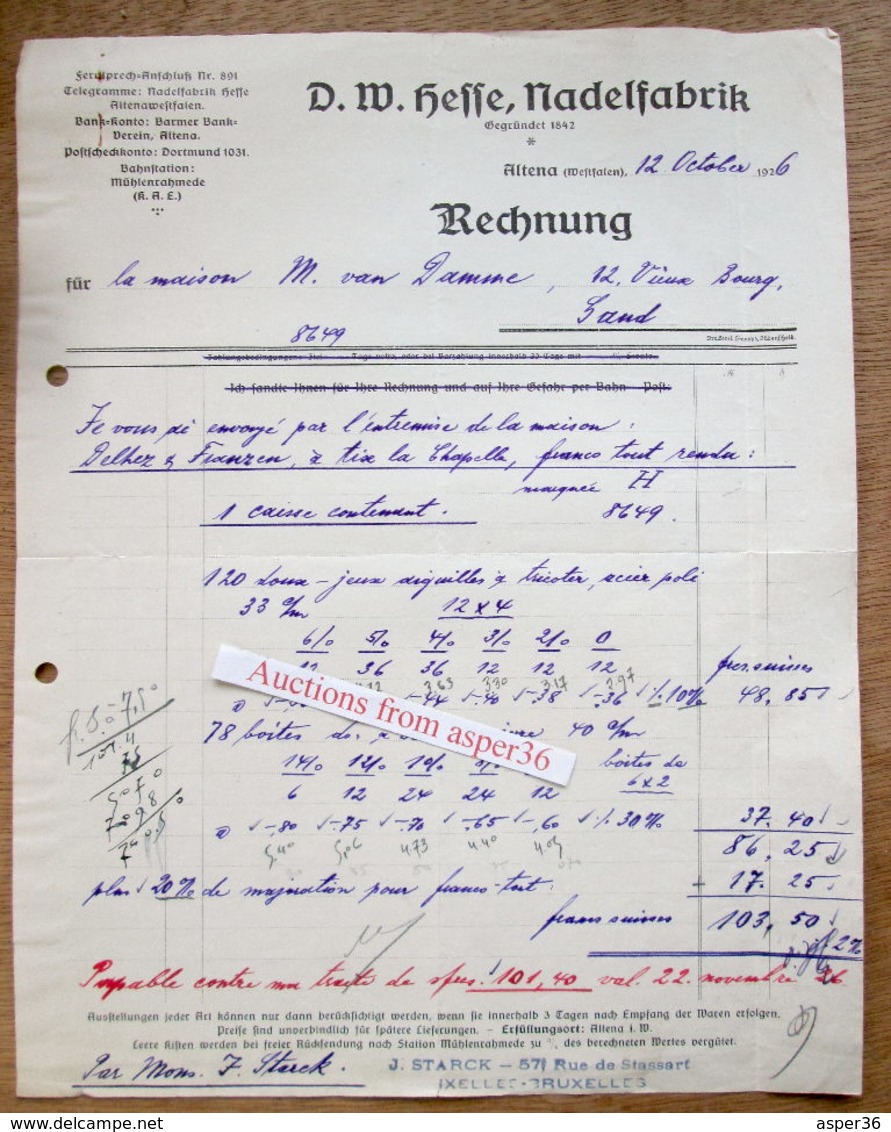 Fernsprech-Anschluß Nr. 891
Telegramme: Nadelfabrik Hesse
Altenawestfalen.
Bank-Konto: Barmer Bank-
Verein, Altena.
Postscheckkonto: Dortmund 1031.
Bahnstation:
Mühlenrahmede
(K. A. E.)
D. W. Hesse, Nadelfabrik
Gegründet 1842
Altena (Westfalen), 12 October 1926
Rechnung
für la maison M. van Damme, 12, Vieux Bourg,
Gand
8649
Zahlungsbedingungen: Ziel Tage netto, oder bei Barzahlung innerhalb 30 Tage mit % Skonto.
Ich sandte Ihnen für Ihre Rechnung und auf Ihre Gefahr per Bahn Post:
Je vous ai envoyé par l'entremise de la maison:
Delhez & Franzen, à Aix la Chapelle, franco tout rendu:
marquée H
1 caisse contenant. 8649.
120 douz-jeux aiguilles à tricoter, acier poli
33 c/m 12 x 4
6/0 5/0 4/0 3/0 2/0 0
12 36 36 12 12 12 frcs. suisses
3.63 3.30 3.17 2.97
-.44 -.40 -.38 -.36 % 10% 48,85
78 boîtes 40 c/m
14/0 12/0 10/0 boîtes de
6 12 24 24 12 6 x 2
à -.80 -.75 -.70 -.65 -.60 % 30% 37.40
5.40 5,06 4.73 4.40 4.05
86,25
plus 20% de majoration pour franco-tout. + 17.25
francs suisses 103,50
2%
Payable contre ma traite de sfrs. 101,40 val. 22. novembre 26
Ausstellungen jeder Art können nur dann berücksichtigt werden, wenn sie innerhalb 3 Tagen nach Empfang der Waren erfolgen.
Preise sind unverbindlich für spätere Lieferungen. – Erfüllungsort: Altena i. W.
Leere Kisten werden bei freier Rücksendung nach Station Mühlenrahmede zu ²/₃ des berechneten Wertes vergütet.
Par Mons. J. Starck.
J. STARCK – 57, Rue de Stassart
IXELLES-BRUXELLES
Auctions from asper36
asper36